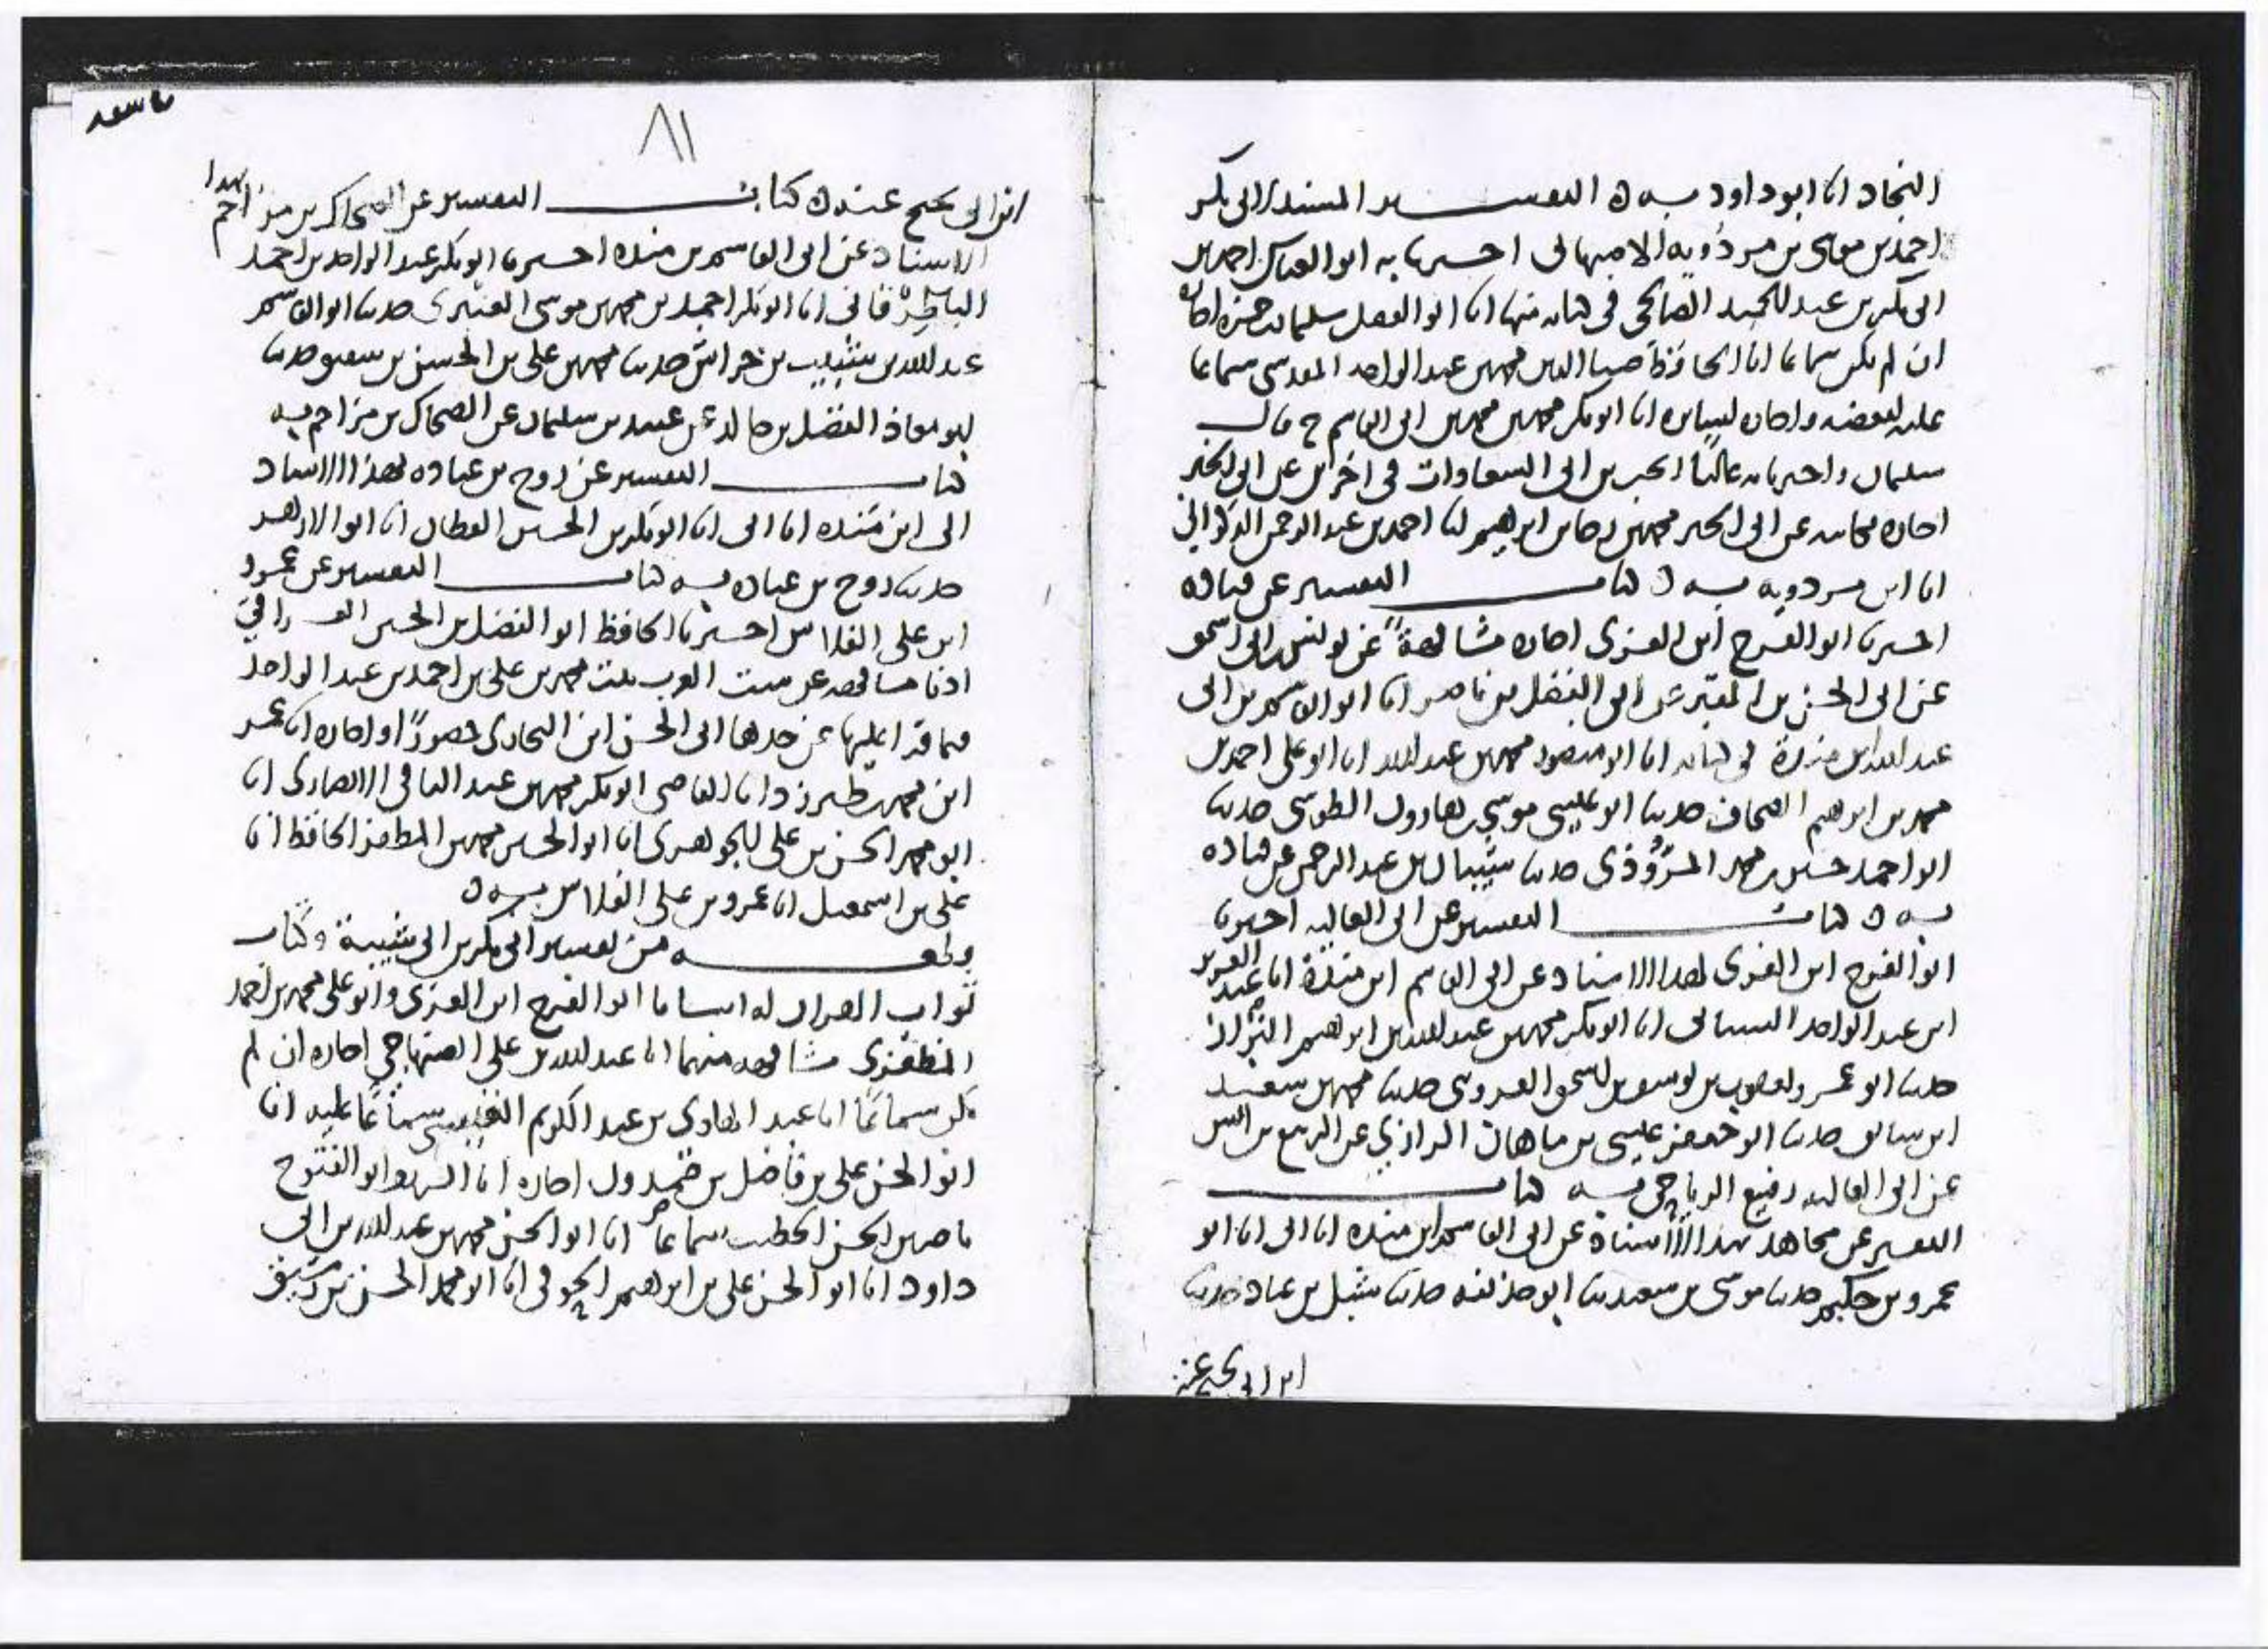 النجاد انا ابو داود به ه التفسير المسند لابي بكر
احمد بن موسى بن مردويه الاصبهاني اخبرنا به ابو العباس احمد بن
ابي بكر بن عبد الحميد الصالحي في كتابه منها انا ابو الفضل سليمان بن حمزة اجازة
ان لم يكن سماعا انا الحافظ ضيا الدين محمد بن عبد الواحد المقدسي سماعا
عليه لبعضه واجازة لسايره انا ابو بكر محمد بن محمد بن ابي القاسم ح قال
سليمان واخبرنا به عاليا ابن ابي السعادات في اخرين عن ابي الخير
اجازة مكاتبة عن ابي الخير محمد بن رجا بن ابراهيم انا احمد بن عبد الرحمن الذكواني
انا ابن مردويه به ه كتاب التفسير عن قتادة
اخبرنا ابو الفرج ابن الغزي اجازة مشافهة عن يونس بن ابي اسحق
عن ابي الحسن بن المقير عن ابي الفضل بن ناصر انا ابو القاسم بن ابي
عبد الله ابن مندة في كتابه انا ابو منصور محمد بن عبد الله انا ابو علي احمد بن
محمد بن ابراهيم الصحاف حدثنا ابو عيسى موسى بن هارون الطوسي حدثنا
ابو احمد حسين بن محمد المروذي حدثنا شيبان بن عبد الرحمن عن قتادة
به ه كتاب التفسير عن ابي العالية اخبرنا
ابو الفرج ابن الغزي بهذا الاسناد عن ابي القاسم ابن مندة انا عبد العزيز
ابن عبد الواحد انا ابو بكر محمد بن عبد الله بن ابراهيم البزاز
حدثنا ابو عمرو يعقوب بن يوسف بن اسحق القزويني حدثنا محمد بن سعيد
ابن سابق حدثنا ابو جعفر عيسى بن ماهان الرازي عن الربيع بن انس
عن ابي العالية رفيع الرياحي به كتاب
التفسير عن مجاهد بهذا الاسناد عن ابي القاسم ابن منده انا ابي انا ابو
عمرو بن حكيم حدثنا موسى بن مسعود حدثنا ابو حذيفه حدثنا شبل بن عباد حدثنا
ابن ابي نجيح عنه
٨١
ابن ابي نجيح عنه ه كتاب التفسير عن الضحاك بن مزاحم بهذا
الاسناد عن ابي القاسم بن منده اخبرنا ابو بكر عبد الواحد بن احمد
الباطرقاني انا ابو بكر احمد بن محمد بن موسى العنبري حدثنا ابو القاسم
عبد الله بن شبيب بن خراش حدثنا محمد بن علي بن الحسن بن شقيق حدثنا
ابو معاذ الفضل بن خالد عن عبيد بن سليمان عن الضحاك بن مزاحم به
كتاب التفسير عن روح بن عبادة بهذا الاسناد
الى ابن منده انا ابي انا ابو بكر بن الحسين القطان انا ابو الازهر
حدثنا روح بن عبادة به كتاب التفسير عن عمرو
ابن علي الفلاس اخبرنا الحافظ ابو الفضل بن الحسين العراقي
اذنا مشافهة عن ست العرب بنت محمد بن علي بن احمد بن عبد الواحد
فيما قرا عليها عن جدها ابي الحسن ابن البخاري حضورا واجازة انا عمر
ابن محمد بن طبرزد انا القاضي ابو بكر محمد بن عبد الباقي الانصاري انا
ابو محمد الحسن بن علي الجوهري انا ابو الحسين محمد بن المظفر الحافظ انا
علي بن اسمعيل انا عمرو بن علي الفلاس به ه
وقطعه من تفسير ابي بكر بن ابي شيبة وكتاب
ثواب القران له انبانا ابو الفرج ابن الغزي وابو علي محمد بن احمد
المطرزي مشافهة منهما انا عبد الله بن علي الصنهاجي اجازة ان لم
يكن سماعا انا عبد الهادي بن عبد الكريم القيسي سماعا عليه انا
ابو الحسن علي بن فاضل بن حمدون اجازة انا الشريف ابو الفتوح
ناصر بن الحسن الخطيب سماعا انا ابو الحسن محمد بن عبد الله بن ابي
داود انا ابو الحسن علي بن ابراهيم الحوفي انا ابو محمد الحسن بن رشيق